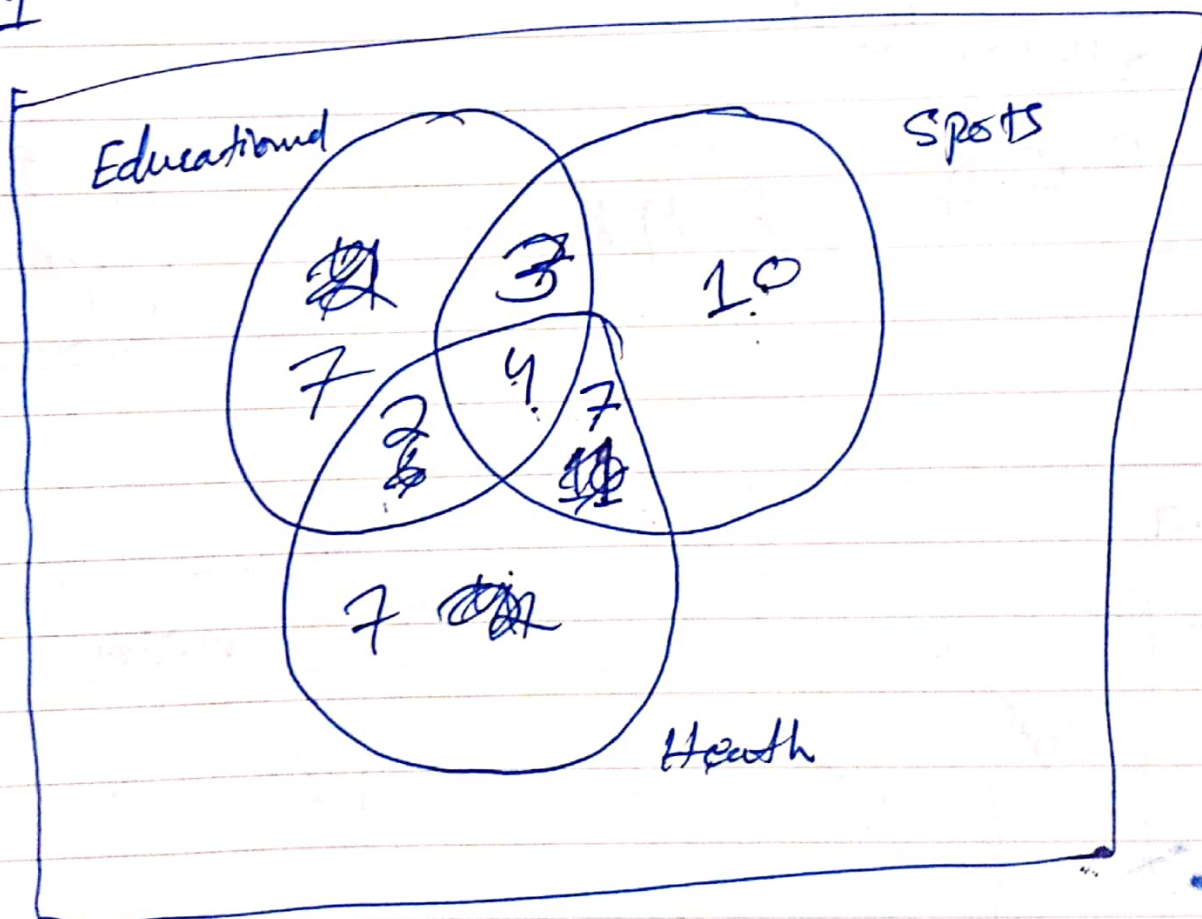 1
Educational
Spots
3
10
7
4
7
2
7
Heath